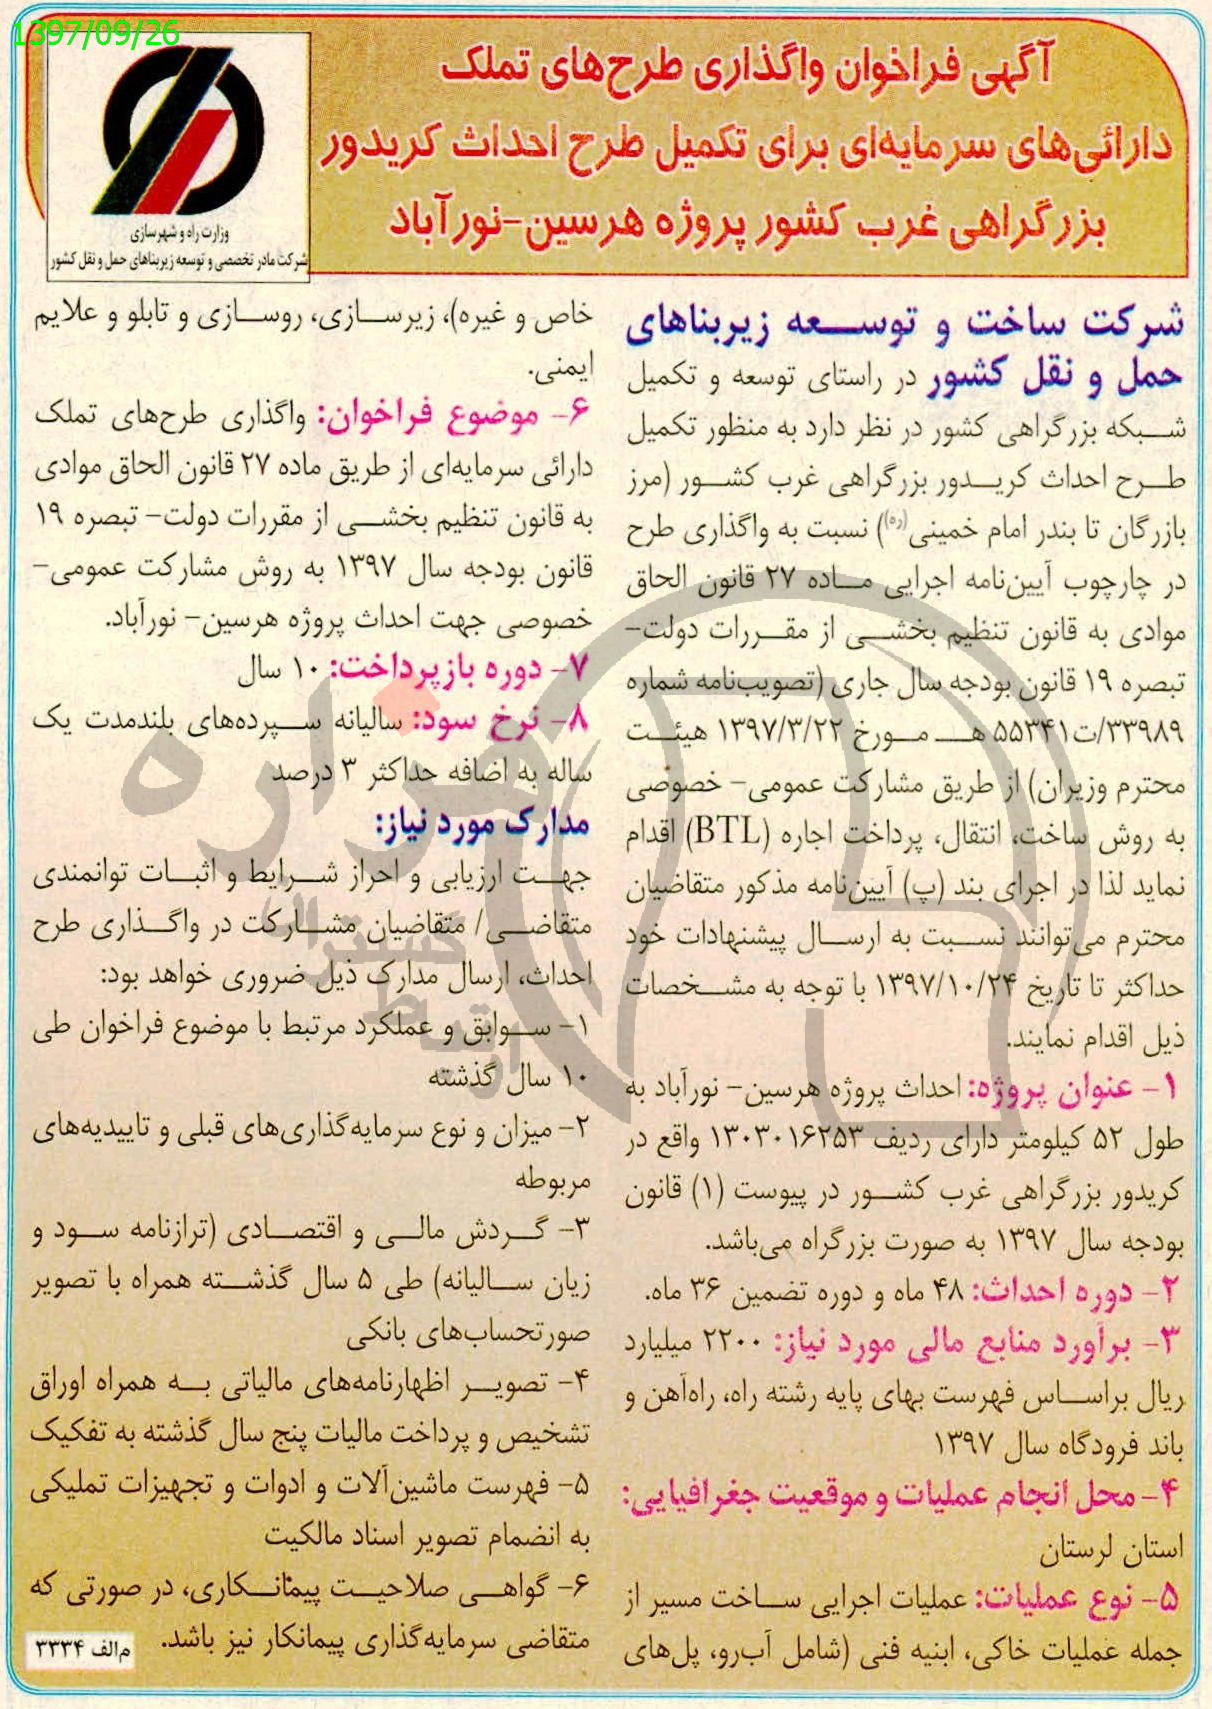 1397/09/26
آگهی فراخوان واگذاری طرح‌های تملک
دارائی‌های سرمایه‌ای برای تکمیل طرح احداث کریدور
بزرگراهی غرب کشور پروژه هرسین-نورآباد
وزارت راه و شهرسازی
شرکت مادر تخصصی و توسعه زیربناهای حمل و نقل کشور
شرکت ساخت و توسعه زیربناهای
حمل و نقل کشور در راستای توسعه و تکمیل
شبکه بزرگراهی کشور در نظر دارد به منظور تکمیل
طرح احداث کریدور بزرگراهی غرب کشور (مرز
بازرگان تا بندر امام خمینی(ره)) نسبت به واگذاری طرح
در چارچوب آیین‌نامه اجرایی ماده ۲۷ قانون الحاق
موادی به قانون تنظیم بخشی از مقررات دولت-
تبصره ۱۹ قانون بودجه سال جاری (تصویب‌نامه شماره
۳۳۹۸۹/ت۵۵۳۴۱ هـ مورخ ۱۳۹۷/۳/۲۲ هیئت
محترم وزیران) از طریق مشارکت عمومی- خصوصی
به روش ساخت، انتقال، پرداخت اجاره (BTL) اقدام
نماید لذا در اجرای بند (پ) آیین‌نامه مذکور متقاضیان
محترم می‌توانند نسبت به ارسال پیشنهادات خود
حداکثر تا تاریخ ۱۳۹۷/۱۰/۲۴ با توجه به مشخصات
ذیل اقدام نمایند.
۱- عنوان پروژه: احداث پروژه هرسین- نورآباد به
طول ۵۲ کیلومتر دارای ردیف ۱۳۰۳۰۱۶۲۵۳ واقع در
کریدور بزرگراهی غرب کشور در پیوست (۱) قانون
بودجه سال ۱۳۹۷ به صورت بزرگراه می‌باشد.
۲- دوره احداث: ۴۸ ماه و دوره تضمین ۳۶ ماه.
۳- برآورد منابع مالی مورد نیاز: ۲۲۰۰ میلیارد
ریال براساس فهرست بهای پایه رشته راه، راه‌آهن و
باند فرودگاه سال ۱۳۹۷
۴- محل انجام عملیات و موقعیت جغرافیایی:
استان لرستان
۵- نوع عملیات: عملیات اجرایی ساخت مسیر از
جمله عملیات خاکی، ابنیه فنی (شامل آب‌رو، پل‌های
خاص و غیره)، زیرسازی، روسازی و تابلو و علایم
ایمنی.
۶- موضوع فراخوان: واگذاری طرح‌های تملک
دارائی سرمایه‌ای از طریق ماده ۲۷ قانون الحاق موادی
به قانون تنظیم بخشی از مقررات دولت- تبصره ۱۹
قانون بودجه سال ۱۳۹۷ به روش مشارکت عمومی-
خصوصی جهت احداث پروژه هرسین- نورآباد.
۷- دوره بازپرداخت: ۱۰ سال
۸- نرخ سود: سالیانه سپرده‌های بلندمدت یک
ساله به اضافه حداکثر ۳ درصد
مدارک مورد نیاز:
جهت ارزیابی و احراز شرایط و اثبات توانمندی
متقاضی/ متقاضیان مشارکت در واگذاری طرح
احداث، ارسال مدارک ذیل ضروری خواهد بود:
۱- سوابق و عملکرد مرتبط با موضوع فراخوان طی
۱۰ سال گذشته
۲- میزان و نوع سرمایه‌گذاری‌های قبلی و تاییدیه‌های
مربوطه
۳- گردش مالی و اقتصادی (ترازنامه سود و
زیان سالیانه) طی ۵ سال گذشته همراه با تصویر
صورتحساب‌های بانکی
۴- تصویر اظهارنامه‌های مالیاتی به همراه اوراق
تشخیص و پرداخت مالیات پنج سال گذشته به تفکیک
۵- فهرست ماشین‌آلات و ادوات و تجهیزات تملیکی
به انضمام تصویر اسناد مالکیت
۶- گواهی صلاحیت پیمانکاری، در صورتی که
متقاضی سرمایه‌گذاری پیمانکار نیز باشد.
م‌الف ۳۳۳۴